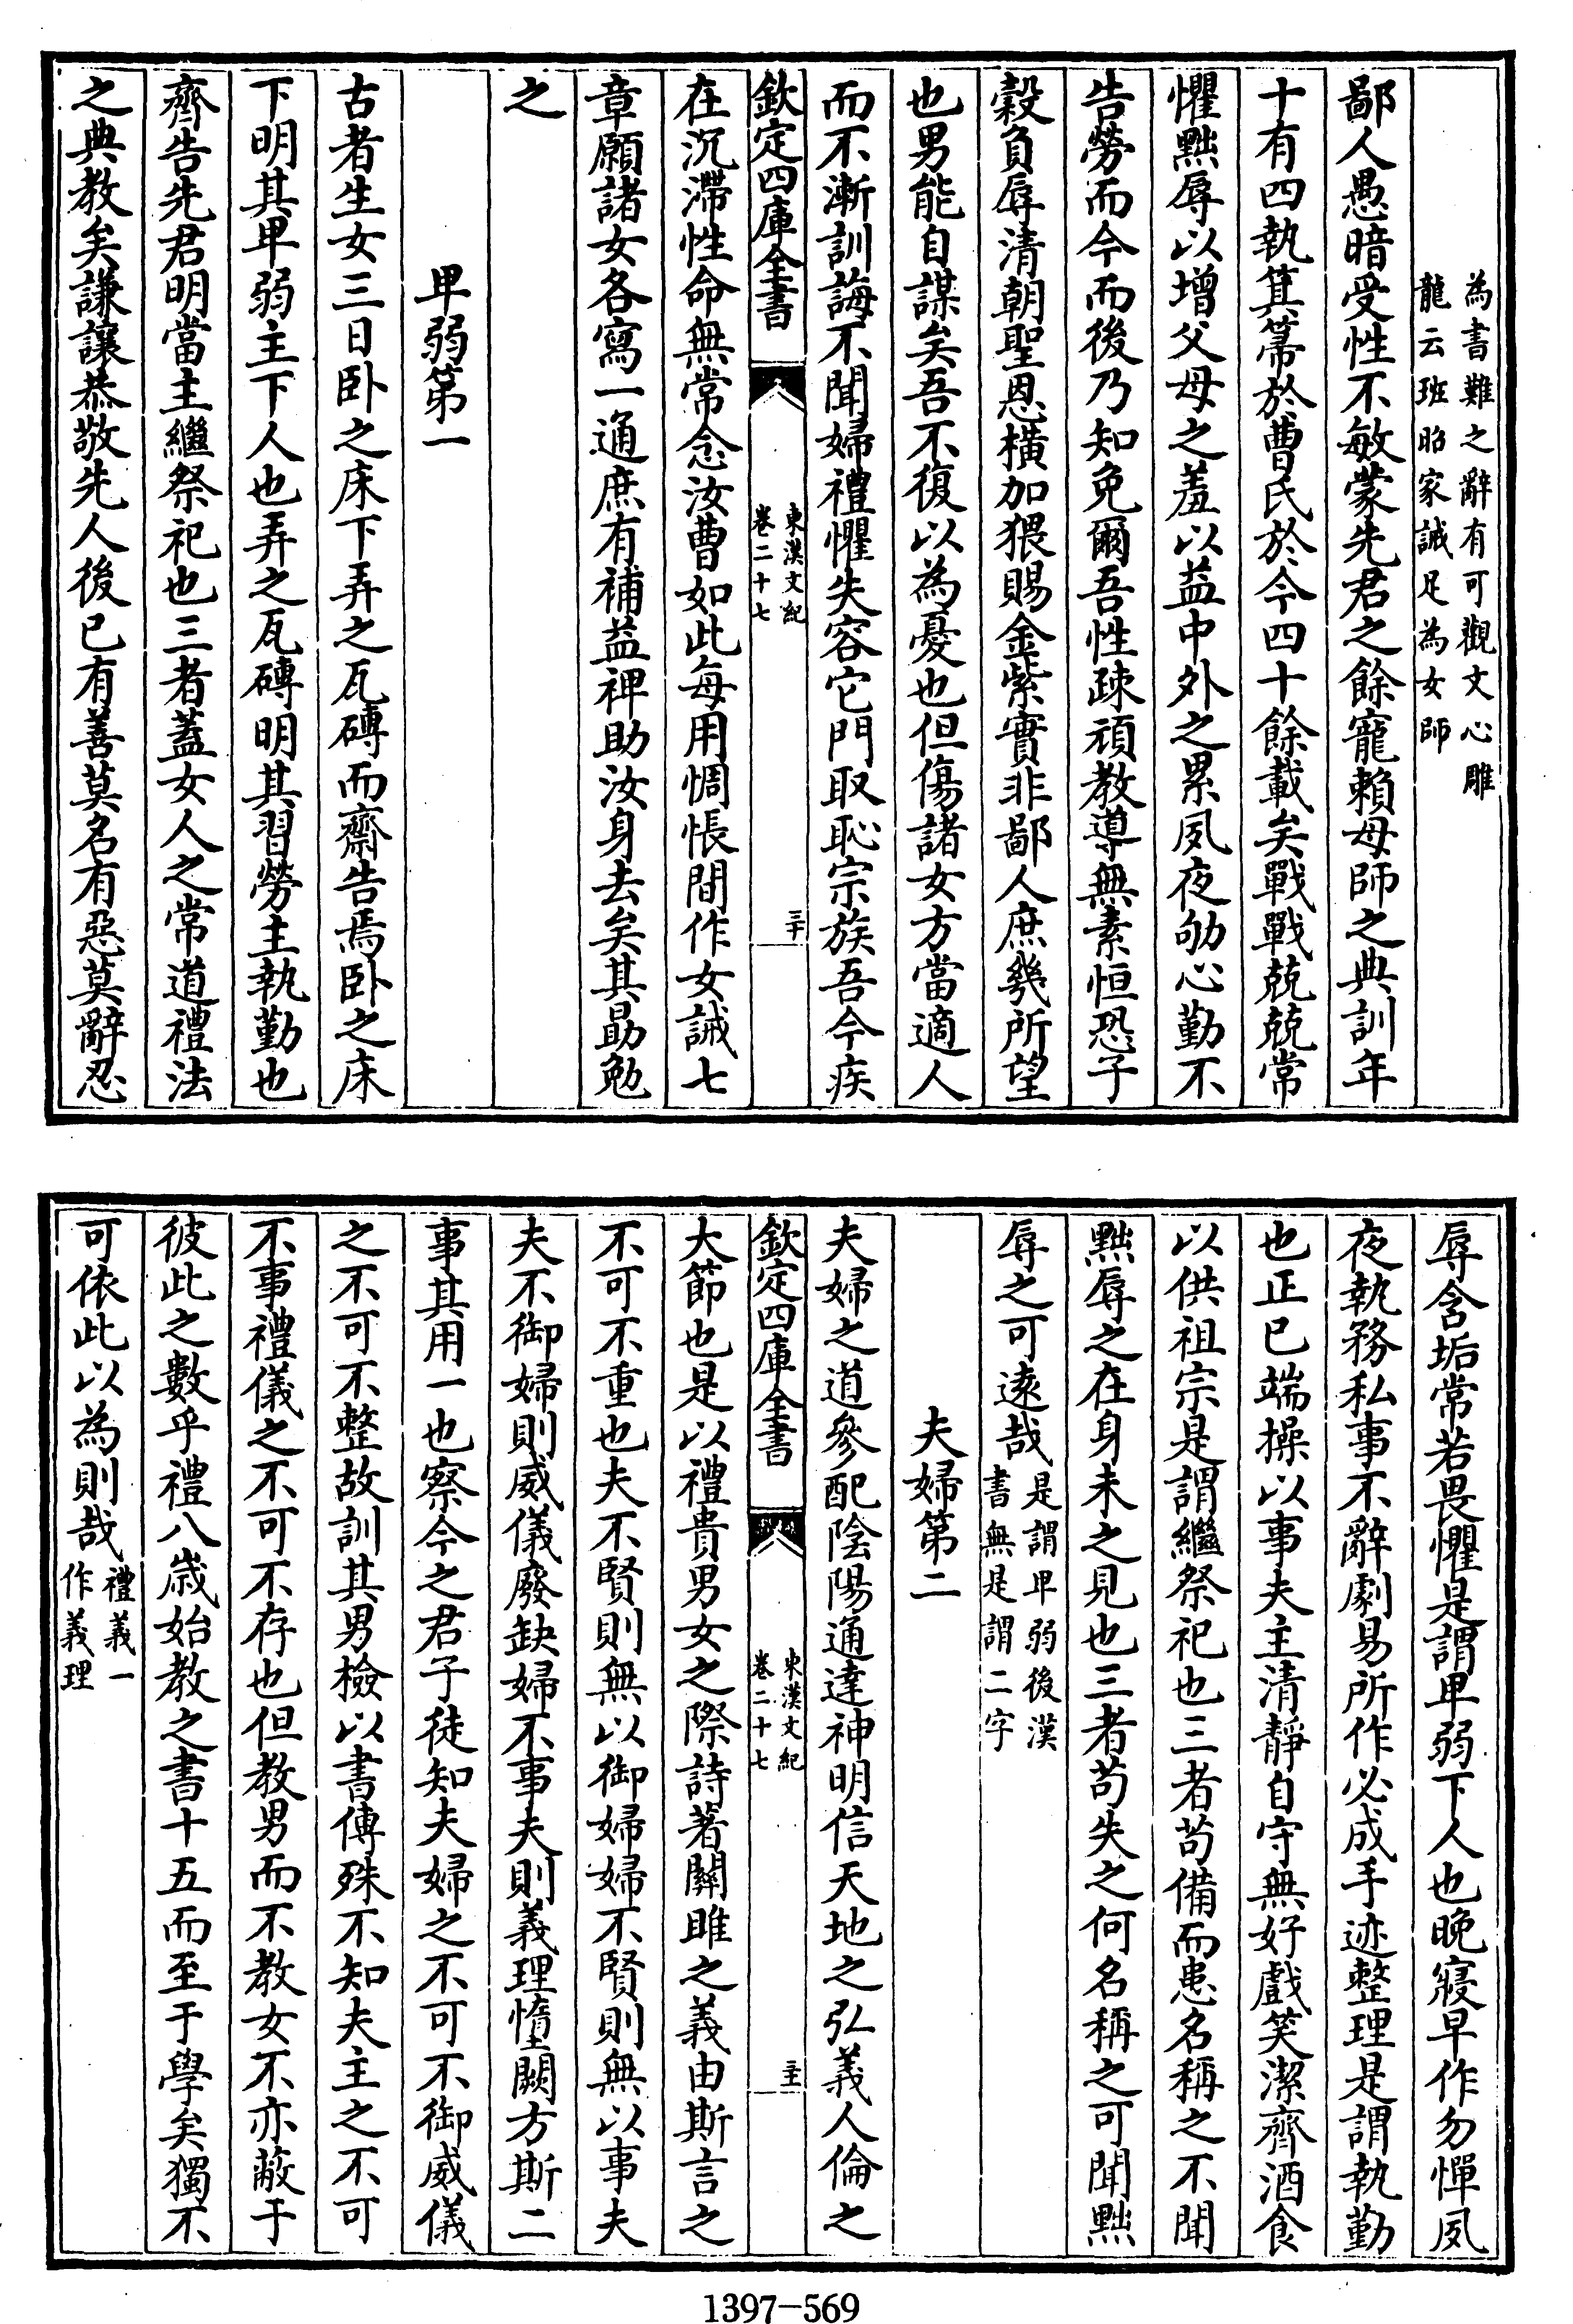 為書難之辭有可觀文心雕
龍云班昭家誡足為女師
鄙人愚暗受性不敏蒙先君之餘寵賴母師之典訓年
十有四執箕箒於曹氏於今四十餘載矣戰戰兢兢常
懼黜辱以增父母之羞以益中外之累夙夜劬心勤不
告勞而今而後乃知免爾吾性疎頑教導無素恒恐子
穀負辱清朝聖恩橫加猥賜金紫實非鄙人庶幾所望
也男能自謀矣吾不復以為憂也但傷諸女方當適人
而不漸訓誨不聞婦禮懼失容它門取恥宗族吾今疾
欽定四庫全書
東漢文紀
卷二十七
三十
在沉滯性命無常念汝曹如此每用惆悵間作女誡七
章願諸女各寫一通庶有補益裨助汝身去矣其勗勉
之
卑弱第一
古者生女三日卧之床下弄之瓦磚而齋告焉卧之床
下明其卑弱主下人也弄之瓦磚明其習勞主執勤也
齊告先君明當主繼祭祀也三者蓋女人之常道禮法
之典教矣謙讓恭敬先人後已有善莫名有惡莫辭忍
辱含垢常若畏懼是謂卑弱下人也晚寢早作勿憚夙
夜執務私事不辭劇易所作必成手迹整理是謂執勤
也正已端操以事夫主清靜自守無好戲笑潔齊酒食
以供祖宗是謂繼祭祀也三者苟備而患名稱之不聞
黜辱之在身未之見也三者苟失之何名稱之可聞黜
辱之可遠哉
是謂卑弱後漢
書無是謂二字
夫婦第二
夫婦之道參配陰陽通達神明信天地之弘義人倫之
欽定四庫全書
東漢文紀
卷二十七
三十一
大節也是以禮貴男女之際詩著關雎之義由斯言之
不可不重也夫不賢則無以御婦婦不賢則無以事夫
夫不御婦則威儀廢缺婦不事夫則義理墮闕方斯二
事其用一也察今之君子徒知夫婦之不可不御威儀
之不可不整故訓其男檢以書傳殊不知夫主之不可
不事禮儀之不可不存也但教男而不教女不亦蔽于
彼此之數乎禮八歲始教之書十五而至于學矣獨不
可依此以為則哉
禮義一
作義理
1397-569